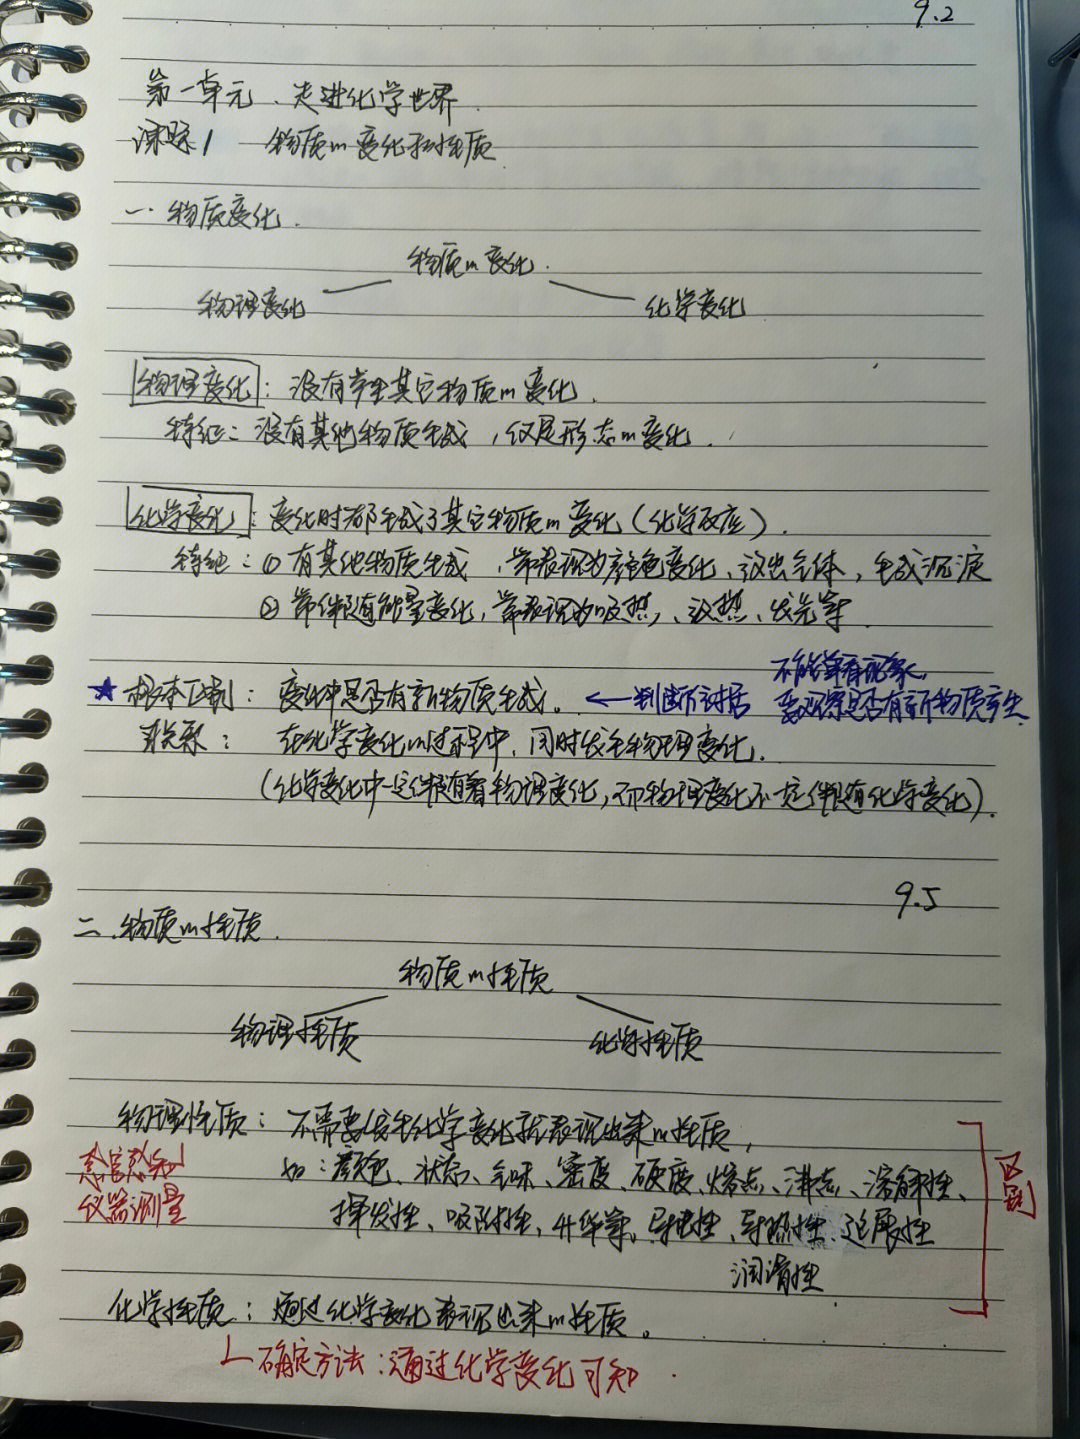 9.2
第一单元、走进化学世界
课题1 物质的变化和性质
一.物质变化.
物质的变化.
物理变化 化学变化
物理变化:没有产生其它物质的变化.
特征:没有其他物质生成,仅是形态的变化.
化学变化:变化时都生成了其它物质的变化(化学反应).
特征:①有其他物质生成,常表现为颜色变化、放出气体,生成沉淀
②常伴随有能量变化,常表现为吸热、放热、发光等
不能单看现象,
★根本区别:变化中是否有新物质生成。←判断依据 要观察是否有新物质产生
联系:在化学变化的过程中,同时发生物理变化.
(化学变化中一定伴随有着物理变化,而物理变化不一定伴随有化学变化).
9.5
二.物质的性质.
物质的性质
物理性质 化学性质
物理性质:不需要发生化学变化就表现出来的性质,
感官感知 如:颜色、状态、气味、密度、硬度、熔点、沸点、溶解性、 区别
仪器测量 挥发性、吸附性,升华等。导电性、导热性、延展性
润滑性
化学性质:通过化学变化表现出来的性质。
确定方法:通过化学变化可知.